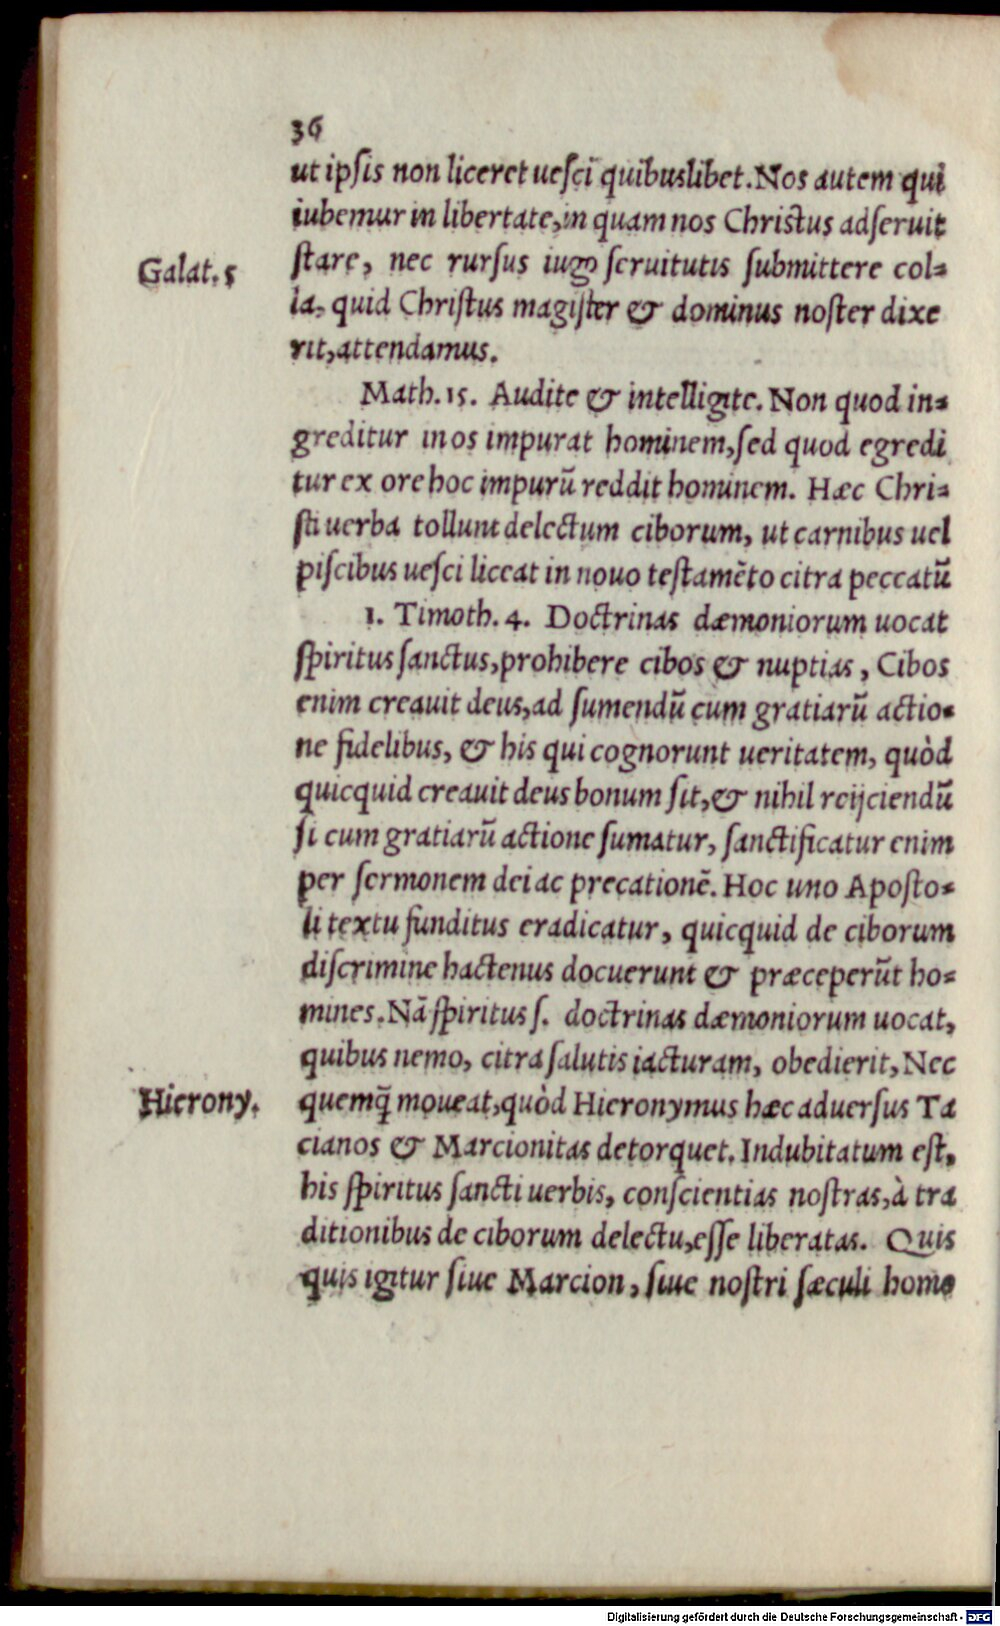 36
ut ipſis non liceret ueſci quibuslibet. Nos autem qui
iubemur in libertate, in quam nos Christus adſeruit
Galat. 5
ſtare, nec rurſus iugo ſeruitutis ſubmittere col⸗
la, quid Chriſtus magiſter & dominus noſter dixe
rit, attendamus.
Math. 15. Audite & intelligite. Non quod in⸗
greditur in os impurat hominem, ſed quod egredi
tur ex ore hoc impurū reddit hominem. Hæc Chri⸗
ſti uerba tollunt delectum ciborum, ut carnibus uel
piſcibus ueſci liceat in nouo teſtamēto citra peccatū
1. Timoth. 4. Doctrinas dæmoniorum uocat
ſpiritus ſanctus, prohibere cibos & nuptias, Cibos
enim creauit deus, ad ſumendū cum gratiarū actio⸗
ne fidelibus, & his qui cognorunt ueritatem, quòd
quicquid creauit deus bonum ſit, & nihil reijciendū
ſi cum gratiarū actione ſumatur, ſanctificatur enim
per ſermonem dei ac precationē. Hoc uno Apoſto⸗
li textu funditus eradicatur, quicquid de ciborum
diſcrimine hactenus docuerunt & præceperūt ho⸗
mines. Nā ſpiritus ſ. doctrinas dæmoniorum uocat,
quibus nemo, citra ſalutis iacturam, obedierit, Nec
Hierony.
quemq̄ moueat, quòd Hieronymus hæc aduerſus Ta
cianos & Marcionitas detorquet. Indubitatum eſt,
his ſpiritus ſancti uerbis, conſcientias noſtras, à tra
ditionibus de ciborum delectu, eſſe liberatas. Quis
quis igitur ſiue Marcion, ſiue noſtri ſæculi homo
Digitalisierung gefördert durch die Deutsche Forschungsgemeinschaft - DFG